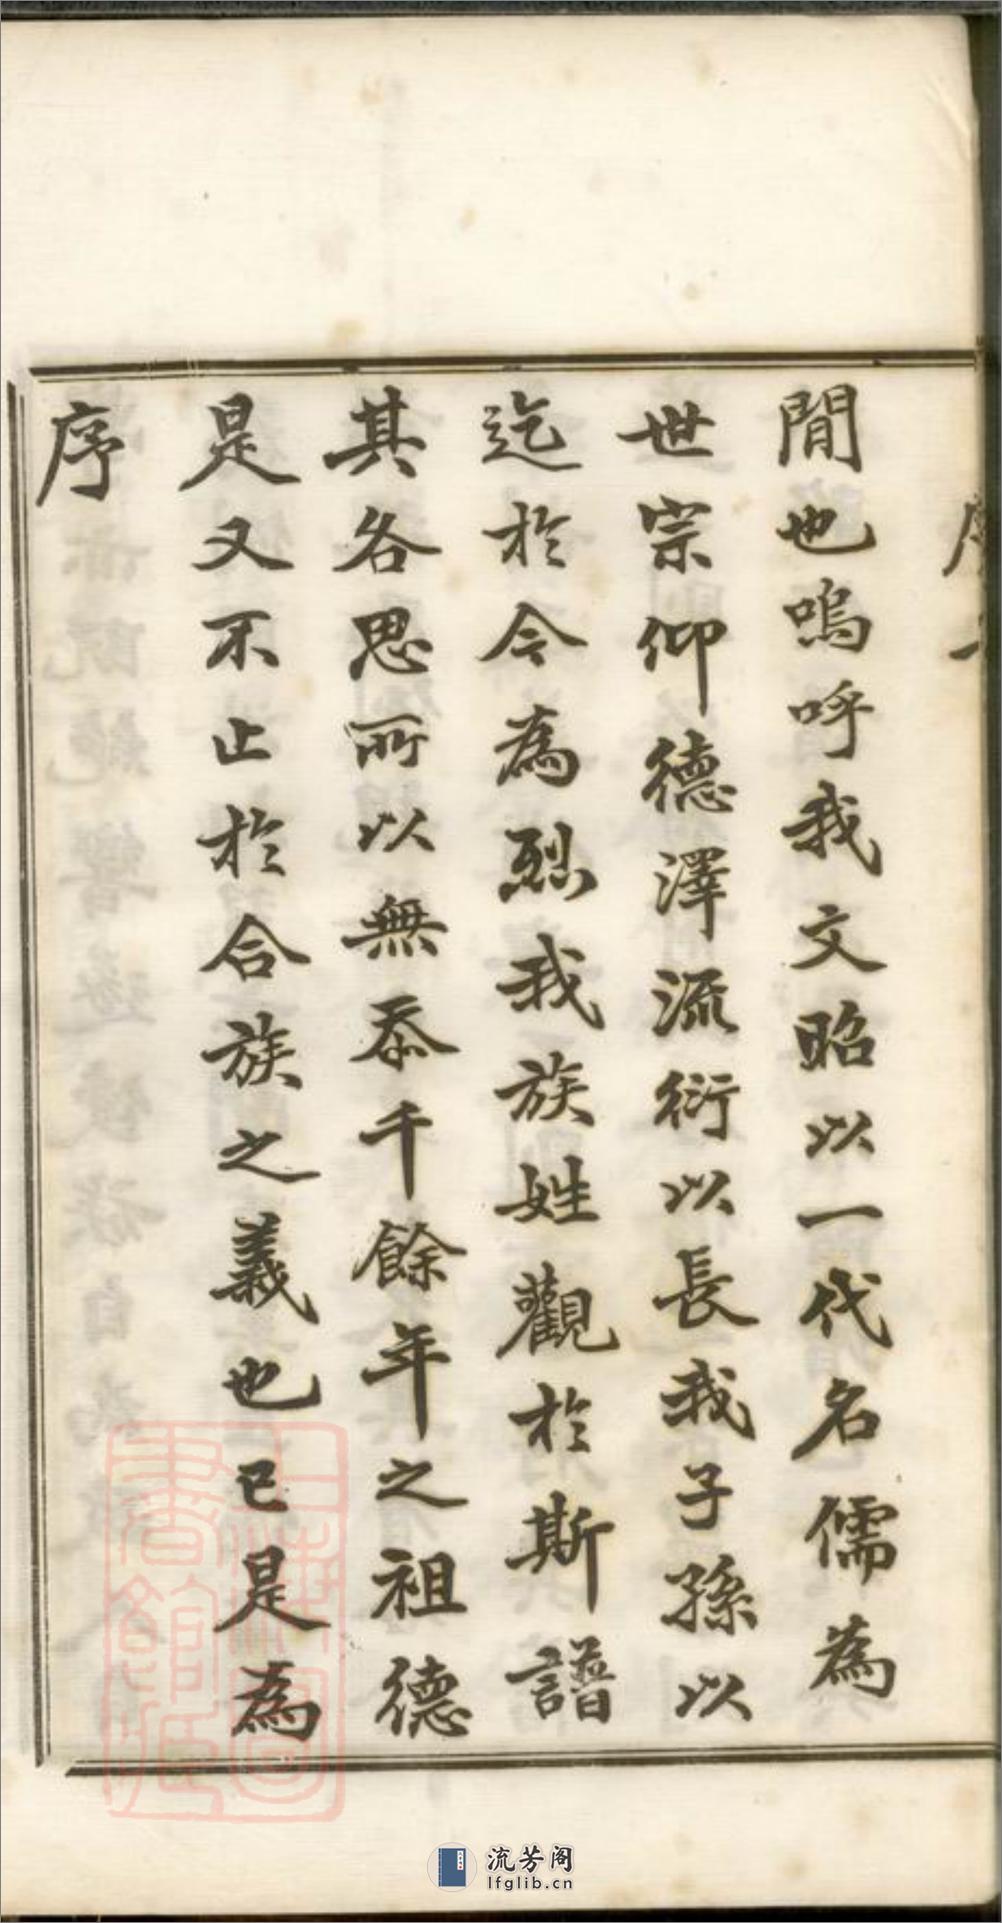 閒也嗚呼我文昭以一代名儒為
世宗仰德澤流衍以長我子孫以
迄於今為烈我族姓觀於斯譜
其各思所以無忝千餘年之祖德
是又不止於合族之義也已是為
序
上海圖書館藏
流芳阁
lfglib.cn